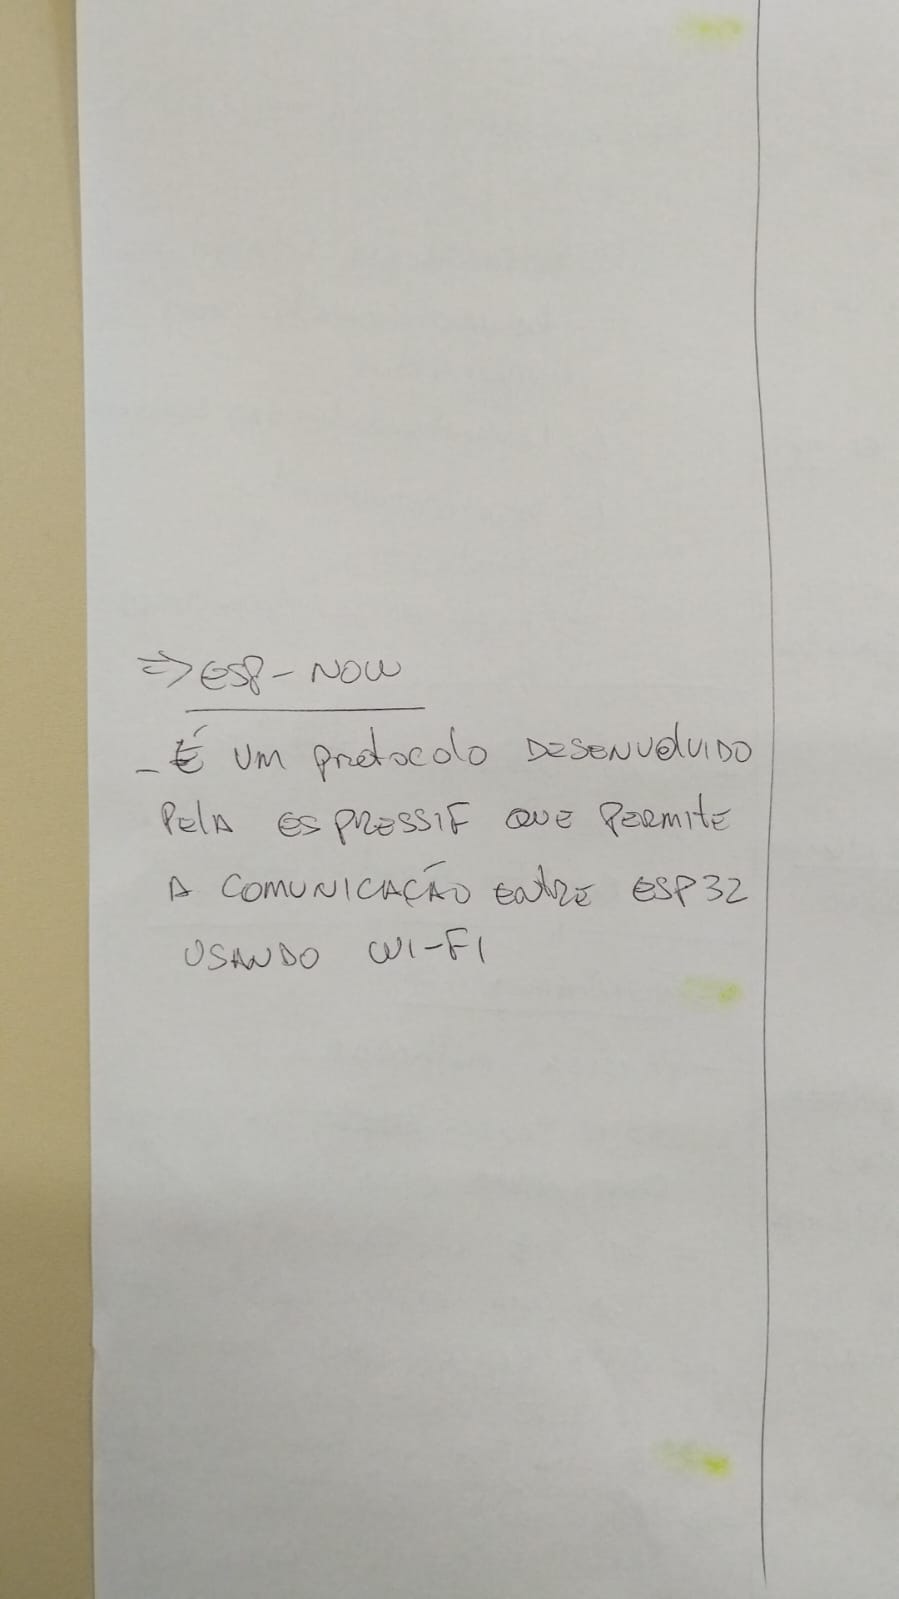 ⇒ ESP-NOW
- É UM PROTOCOLO DESENVOLVIDO
PELA ESPRESSIF QUE PERMITE
A COMUNICAÇÃO ENTRE ESP32
USANDO WI-FI